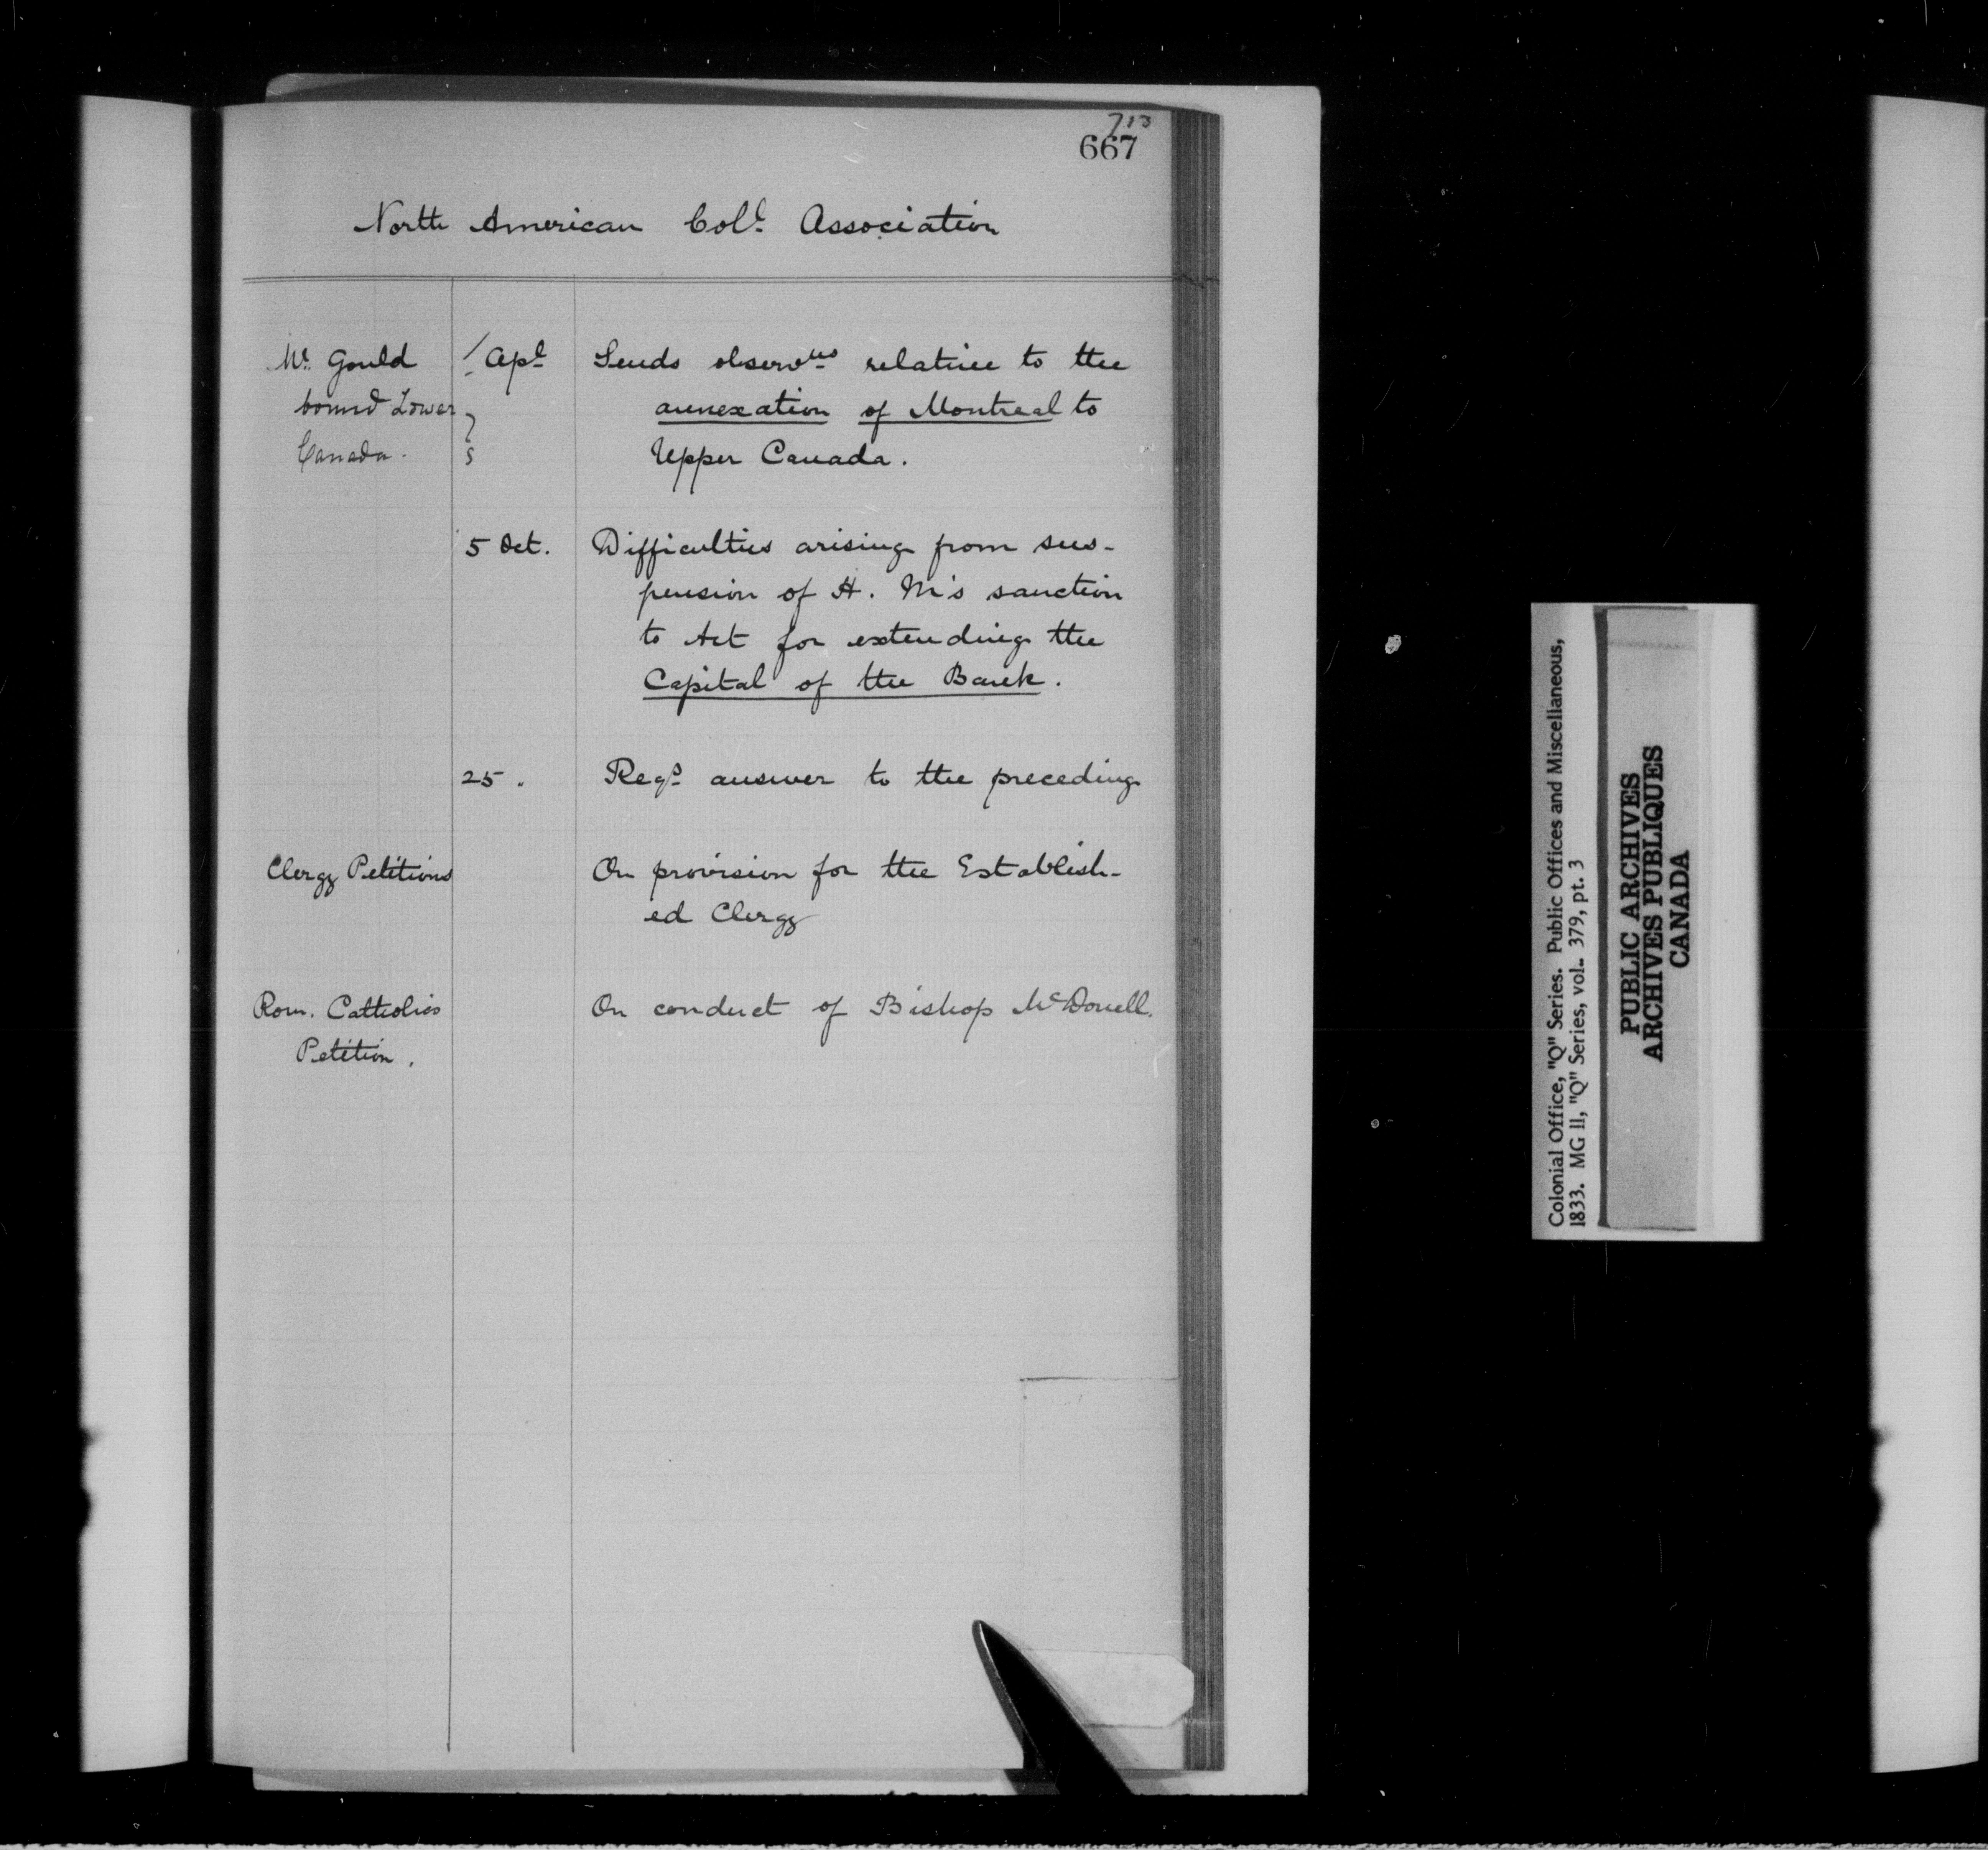 713
667
North American Col^l. Association
Mr. Gould / Apl Sends observ^ns relative to the
bound Lower annexation of Montreal to
Canada. Upper Canada.
5 Oct. Difficulties arising from sus-
pension of H. M's sanction
to Act for extending the
Capital of the Bank.
25 . Reqs answer to the preceding
Clergy Petitions On provision for the Establish-
ed Clergy
Rom. Catholics On conduct of Bishop McDonell.
Petition.
Colonial Office, "Q" Series. Public Offices and Miscellaneous,
1833. MG 11, "Q" Series, vol. 379, pt. 3
PUBLIC ARCHIVES
ARCHIVES PUBLIQUES
CANADA